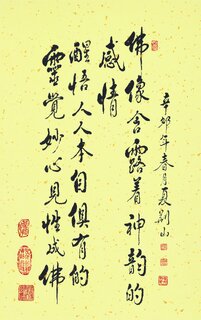 佛像含露着神韵的
感情
醒悟人人本自俱有的
靈覺妙心見性成佛
辛卯年春月夏荆山